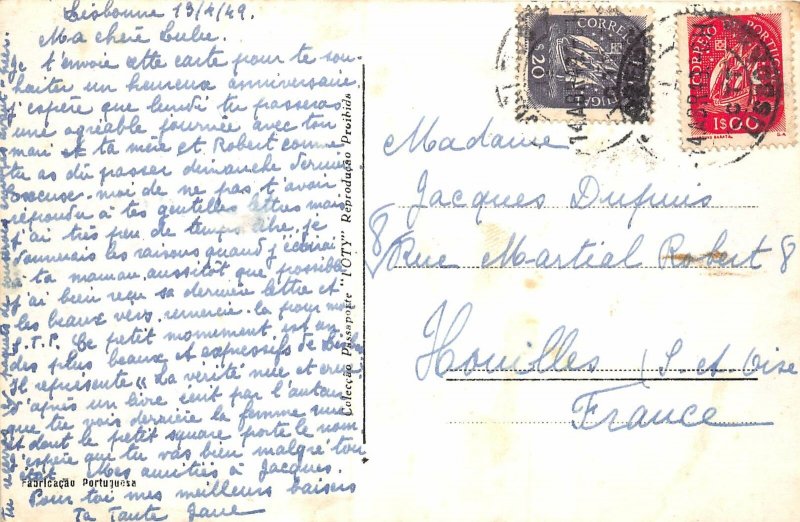 Lisbonne 13/4/49.
Ma chère Lulu.
Je t'envoie cette carte pour te sou-
haiter un heureux anniversaire
j'espère que lundi tu passeras
une agréable journée avec ton
mari et ta mère et Robert comme
tu as dû passer dimanche dernier
excuse-moi de ne pas t'avoir
répondu à tes gentilles lettres mais
j'ai très peu de temps libre. je
donnerais les raisons quand j'écrirai
à ta maman, aussitôt que possible
j'ai bien reçu sa dernière lettre et
les beaux vers, remercie-la pour moi
S.T.P. Ce petit monument est un
des plus beaux et expressifs de
Il représente "La vérité nue et
d'après un livre écrit par l'auteur
que tu vois derrière la femme nue
et dont le petit square porte le nom
j'espère que tu vas bien malgré ton
état. Mes amitiés à Jacques.
Pour toi mes meilleurs baisers
Ta Tante Jane
Fabricação Portuguesa
Colecção Passaporte "LOTY" Reprodução Proibida
CORREIO
$20
CORREIO PORTUGAL
1$00
Madame
Jacques Dufuis
8 Rue Martial Robert 8
Houilles (S. et Oise
France